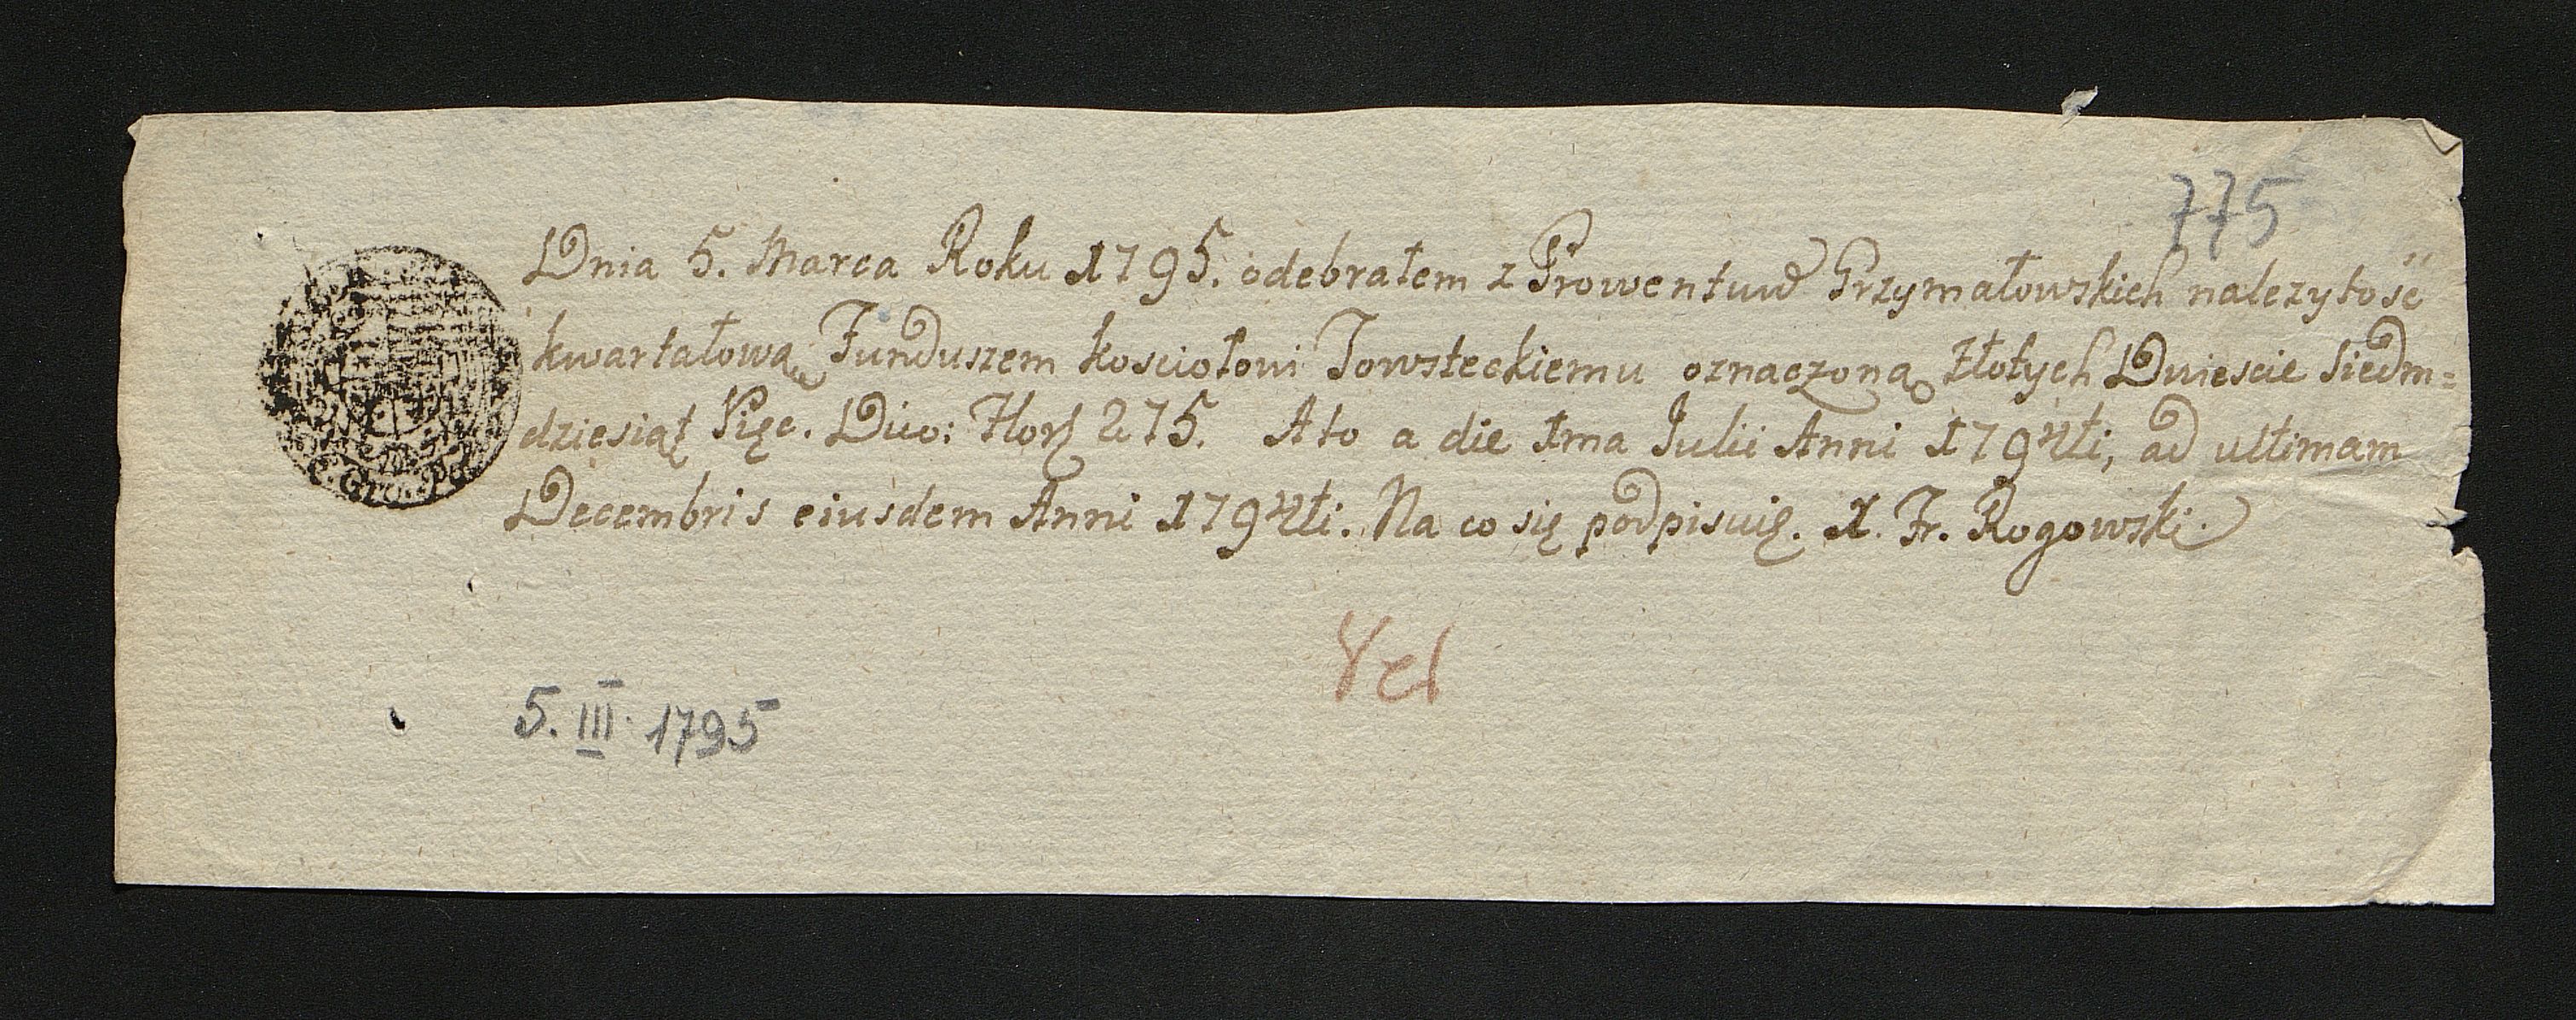 775
Dnia 5. Marca Roku 1795. odebrałem z Prowentuw Grzymałowskich nalezytość
kwartałową Funduszem kosciołowi Towsteckiemu oznaczoną Złotych Dwiescie Siedm=
dziesiąt Pięc. Dico: 275. A to a die 1ma Julii Anni 1794ti, ad ultimam
Decembris eiusdem Anni 1794ti. Na co się podpisuię. X. Fr. Rogowski.
5. III. 1795